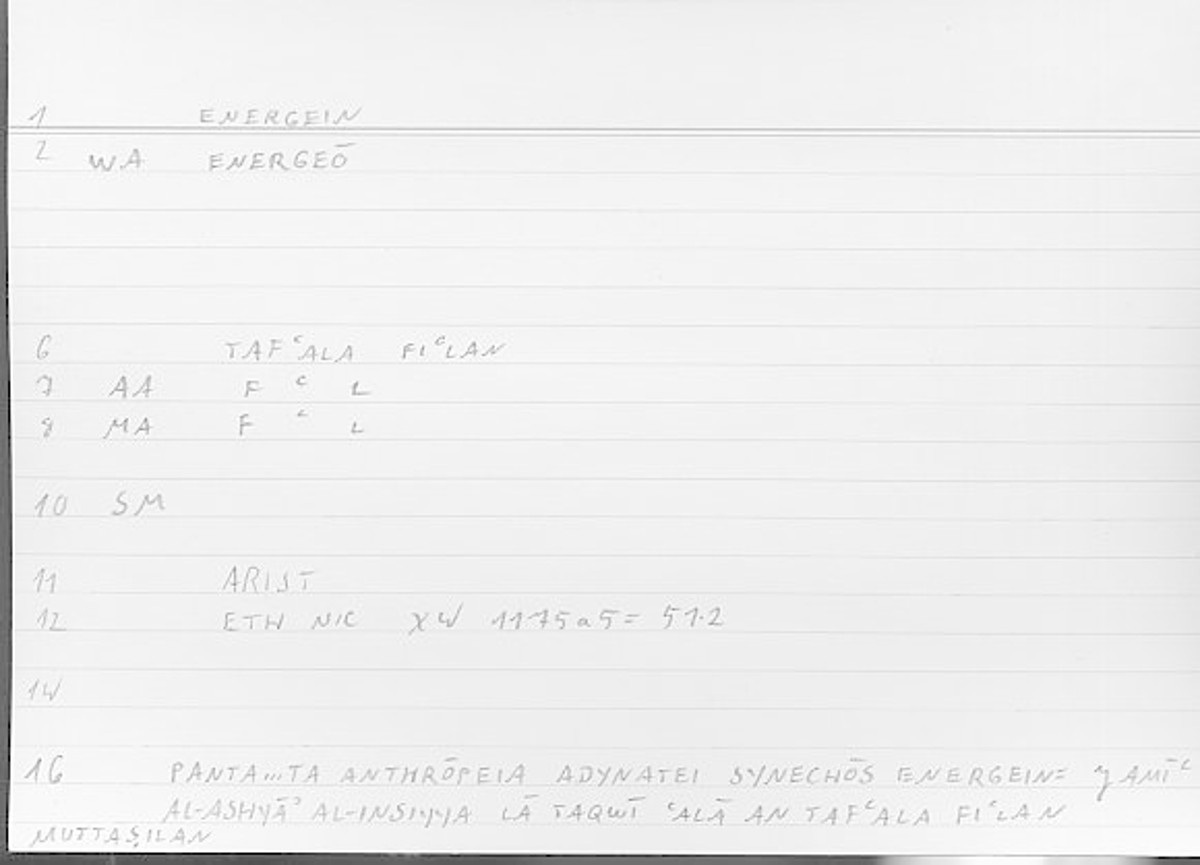 1 ENERGEIN
2 WA ENERGEŌ
6 TAFʿALA FIʿLAN
7 AA F ʿ L
8 MA F ʿ L
10 SM
11 ARIST
12 ETH NIC X4 1175a5= 51.2
14
16 PANTA...TA ANTHRŌPEIA ADYNATEI SYNECHŌS ENERGEIN= ǦAMĪʿ
AL-ASHYĀʾ AL-INSIYYA LĀ TAQWĪ ʿALĀ AN TAFʿALA FIʿLAN
MUTTAṢILAN